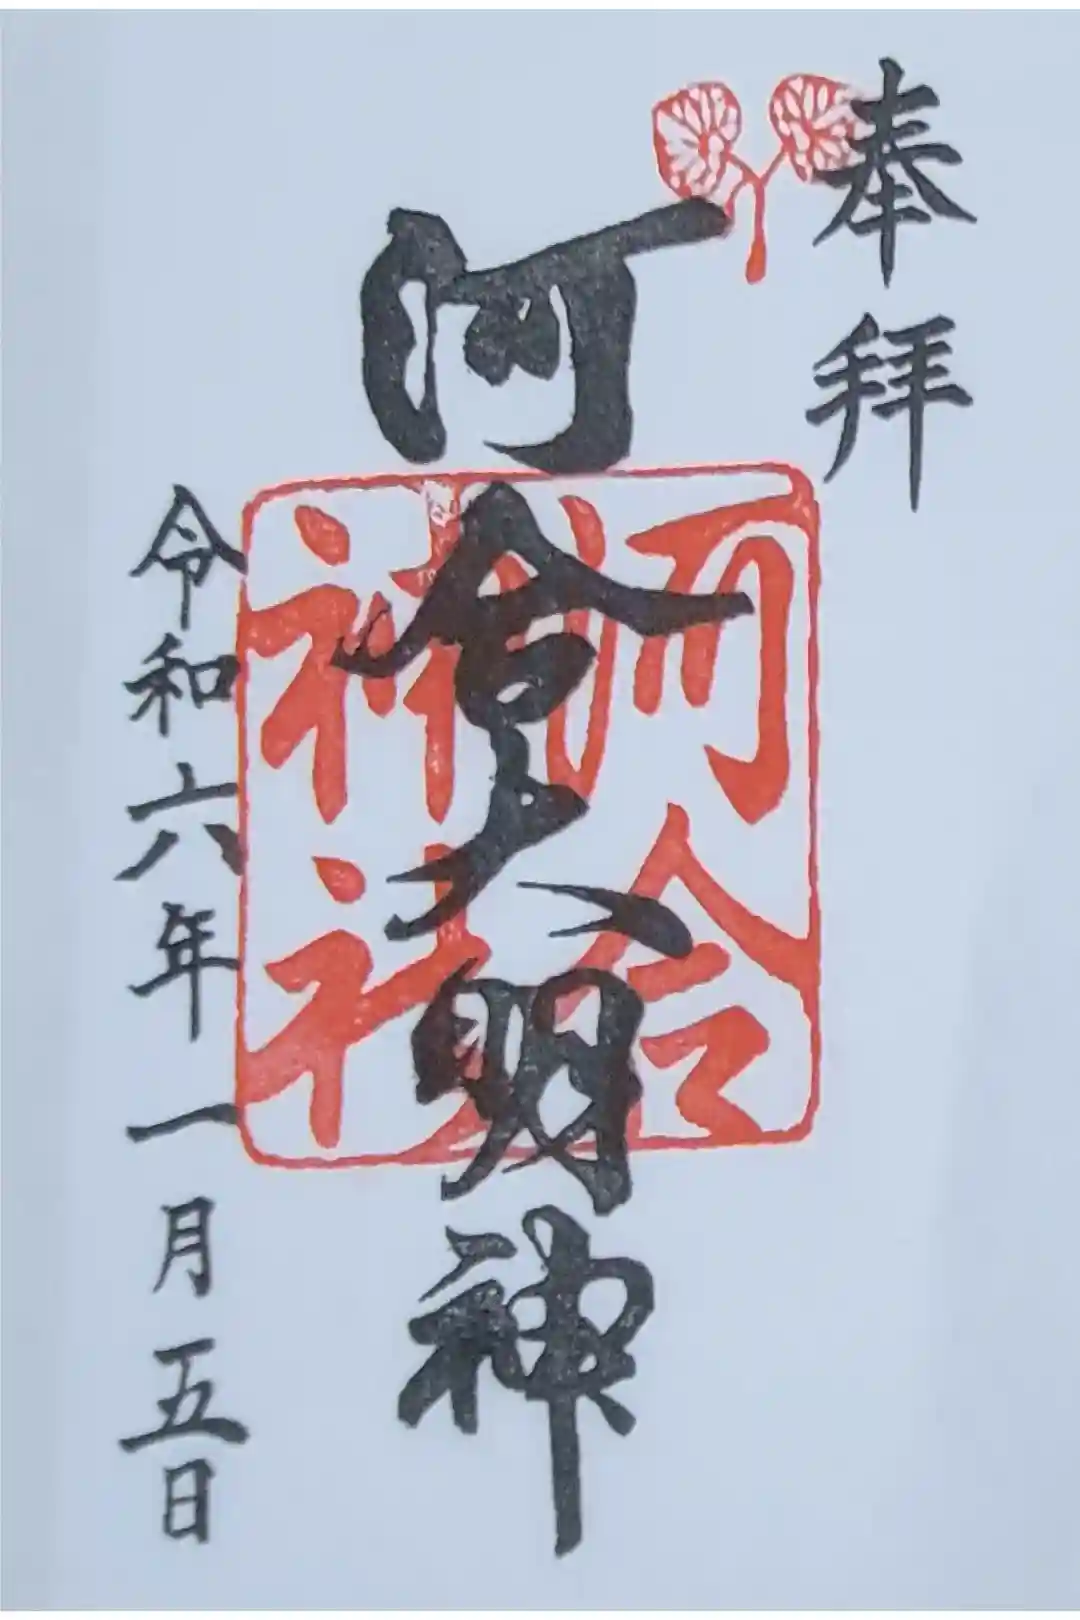 奉拝
河合大明神
河合神社
令和六年一月五日